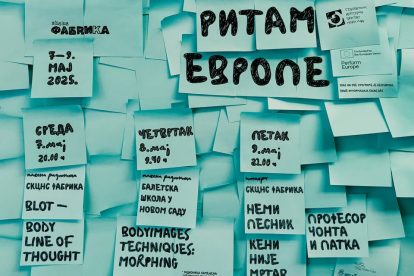 ФАБRИКА
7—9.
МАЈ
2025.
РИТАМ
ЕВРОПЕ
Perform
Europe
СРЕДА
7. мај
ЧЕТВРТАК
8. мај
ПЕТАК
9. мај
СКЦНС ФАБРИКА
BLOT —
BODY
LINE OF
THOUGHT
БАЛЕТСКА
ШКОЛА У
НОВОМ САДУ
BODYIMAGES
TECHNIQUES:
MORPHING
СКЦНС ФАБРИКА
НЕМИ
ПЕСНИК
КЕНИ
НИЈЕ
МРТАВ
ПРОФЕСОР
ЧОНТА
И ПАТКА